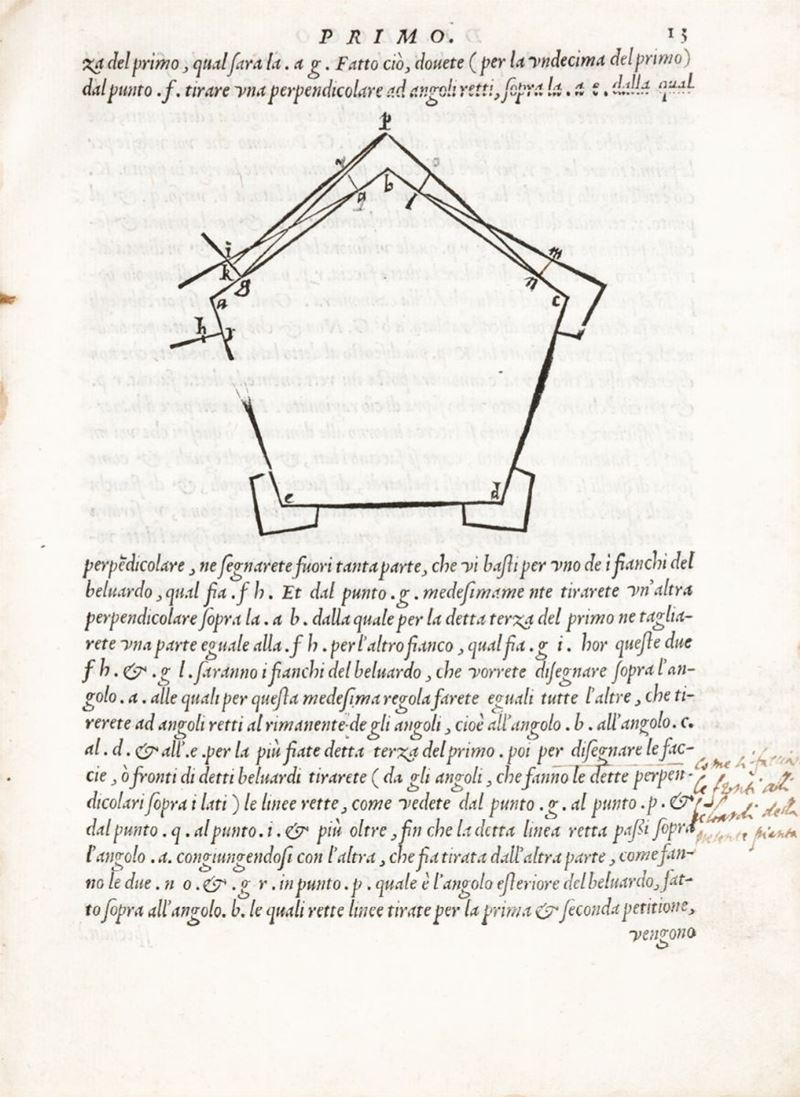 PRIMO. 13
za del primo, qual sarà la. a g. Fatto ciò, douete (per la vndecima del primo)
dal punto .f. tirare vna perpendicolare ad angoli retti, sopra la. a e. dalla qual
p
r
o
b
q
l
i
k
g
m
n
a
c
h
f
e
d
perpẽdicolare, ne segnarete fuori tanta parte, che vi basti per vno de i fianchi del
beluardo, qual sia .f h. Et dal punto .g. medesimame nte tirarete vn'altra
perpendicolare sopra la .a b. dalla quale per la detta terza del primo ne taglia-
rete vna parte eguale alla .f h. per l'altro fianco, qual sia .g i. hor queste due
f h. & .g l. saranno i fianchi del beluardo, che vorrete disegnare sopra l'an-
golo .a. alle quali per questa medesima regola farete eguali tutte l'altre, che ti-
rerete ad angoli retti al rimanente de gli angoli, cioè all'angolo .b. all'angolo. c.
al .d. & all'.e .per la più fiate detta terza del primo . poi per disegnare le fac-
cie, ò fronti di detti beluardi tirarete (da gli angoli, che fanno le dette perpen-
dicolari sopra i lati) le linee rette, come vedete dal punto .g. al punto .p. &
dal punto .q. al punto .i. & più oltre, fin che la detta linea retta passi sopra
l'angolo .a. congiungendosi con l'altra, che sia tirata dall'altra parte, come fan-
no le due .n o. & .g r. in punto .p. quale è l'angolo esteriore del beluardo, fat-
to sopra all'angolo. b. le quali rette linee tirate per la prima & seconda petitione,
vengono
come si faccin
le fronti alli
beluardi della
presente pianta